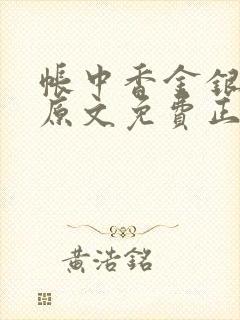 帳中香金銀
原文免費正
黃浩銘